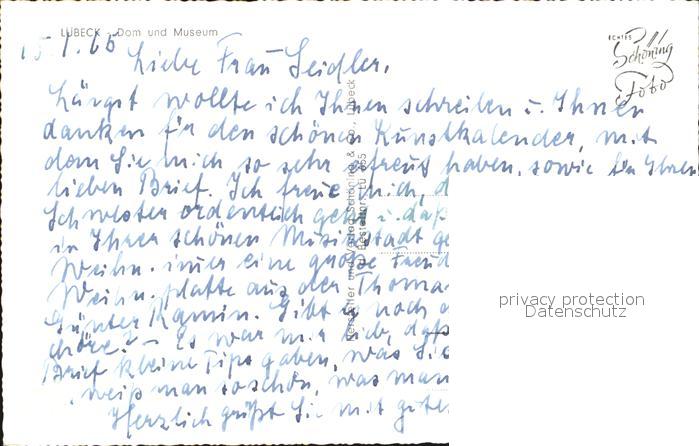 LÜBECK - Dom und Museum
ECHTES
Schöning
Foto
15.1.65
Liebe Frau Seidler,
Längst wollte ich Ihnen schreiben u. Ihnen
danken für den schönen Kunstkalender, mit
dem Sie mich so sehr erfreut haben, sowie für Ihren
lieben Brief. Ich freue mich, d
Schwester ordentlich geht u. daß
in Ihrer schönen Musikstadt ge
Weihn. immer eine große Freud
Weihn.platte aus der Thoma
Günter Ramin. Gibt es noch
chöre? - Es war mir lieb, daß
Brief kleine Tips gaben, was Sie
weiß man so schön, was man
Herzlich grüßt Sie mit gute
privacy protection
Datenschutz